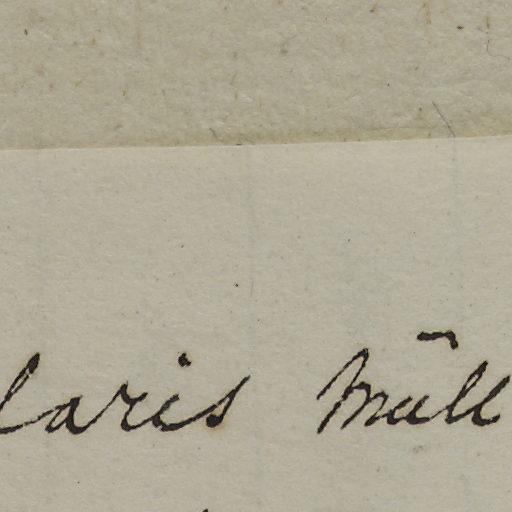 laris Müll